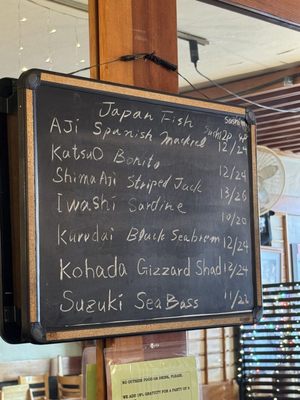 Japan Fish
Sushi 2P
AJi Spanish Mackrel 12/24
KatsuO Bonito 12/24
ShimaAJi Striped Jack 13/26
Iwashi Sardine 10/20
Kurodai Black Seabrem 12/24
Kohada Gizzard Shad 12/24
Suzuki SeaBass 11/22
NO OUTSIDE FOOD OR DRINK, PLEASE.
WE ADD 18% GRATUITY FOR A PARTY OF 6